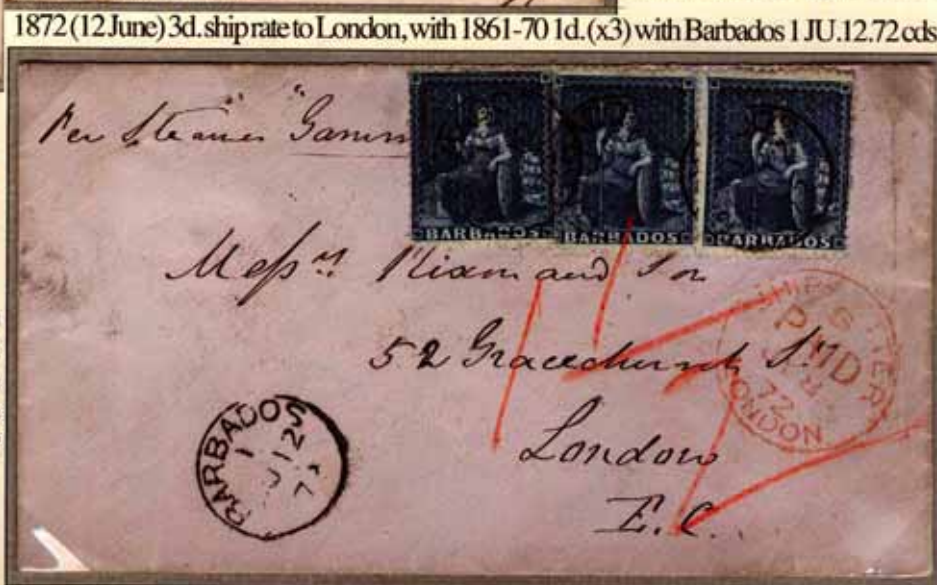 1872 (12 June) 3d. ship rate to London, with 1861-70 1d. (x3) with Barbados 1 JU.12.72 cds
Per Steamer
BARBADOS BARBADOS BARBADOS
Messrs Nixon and Son
52 Gracechurch St.
SHIP LETTER
PAID
72
LONDON
London
E.C.
BARBADOS
1
JU 12
72